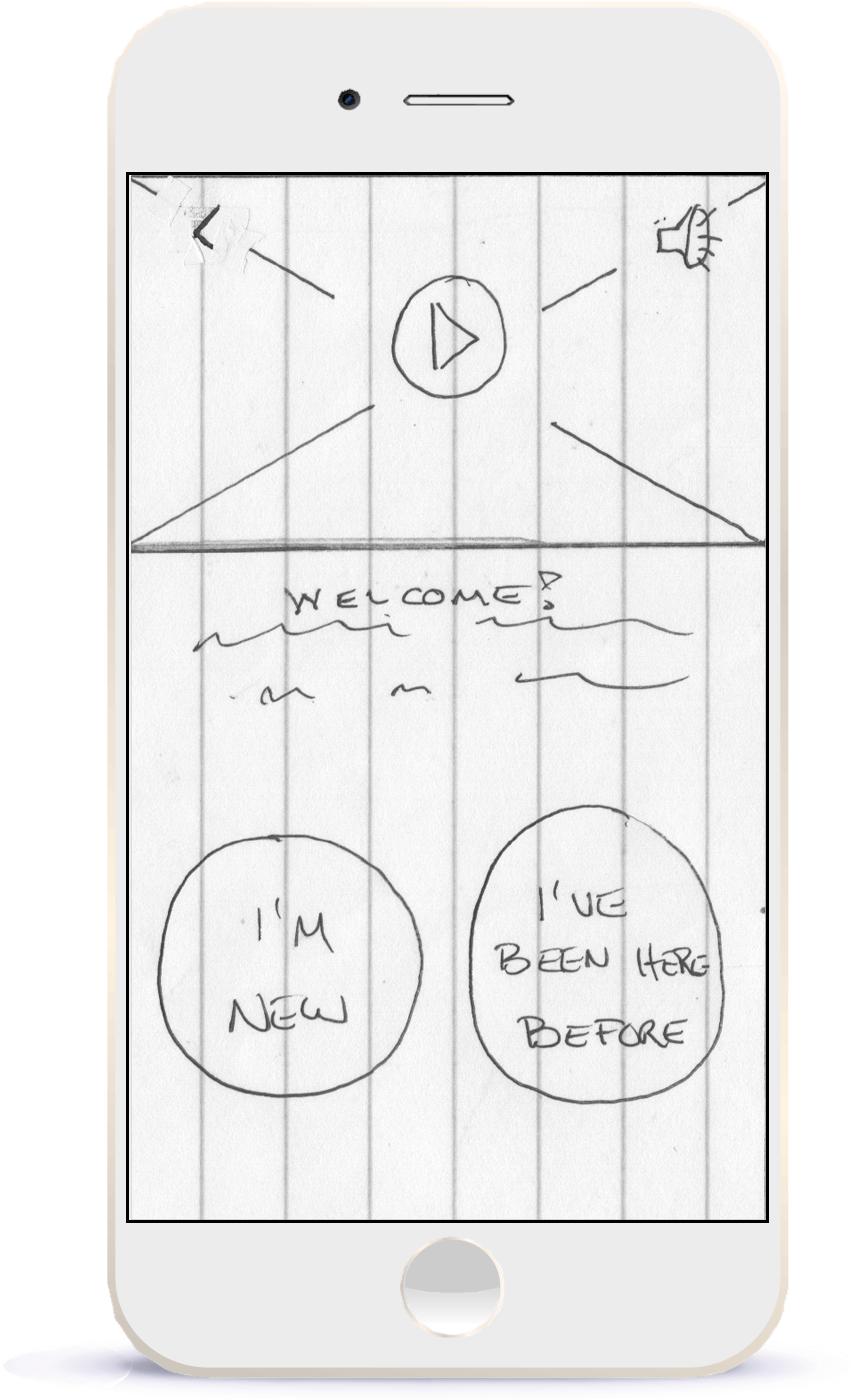 WELCOME!
I'M
NEW
I'VE
BEEN HERE
BEFORE